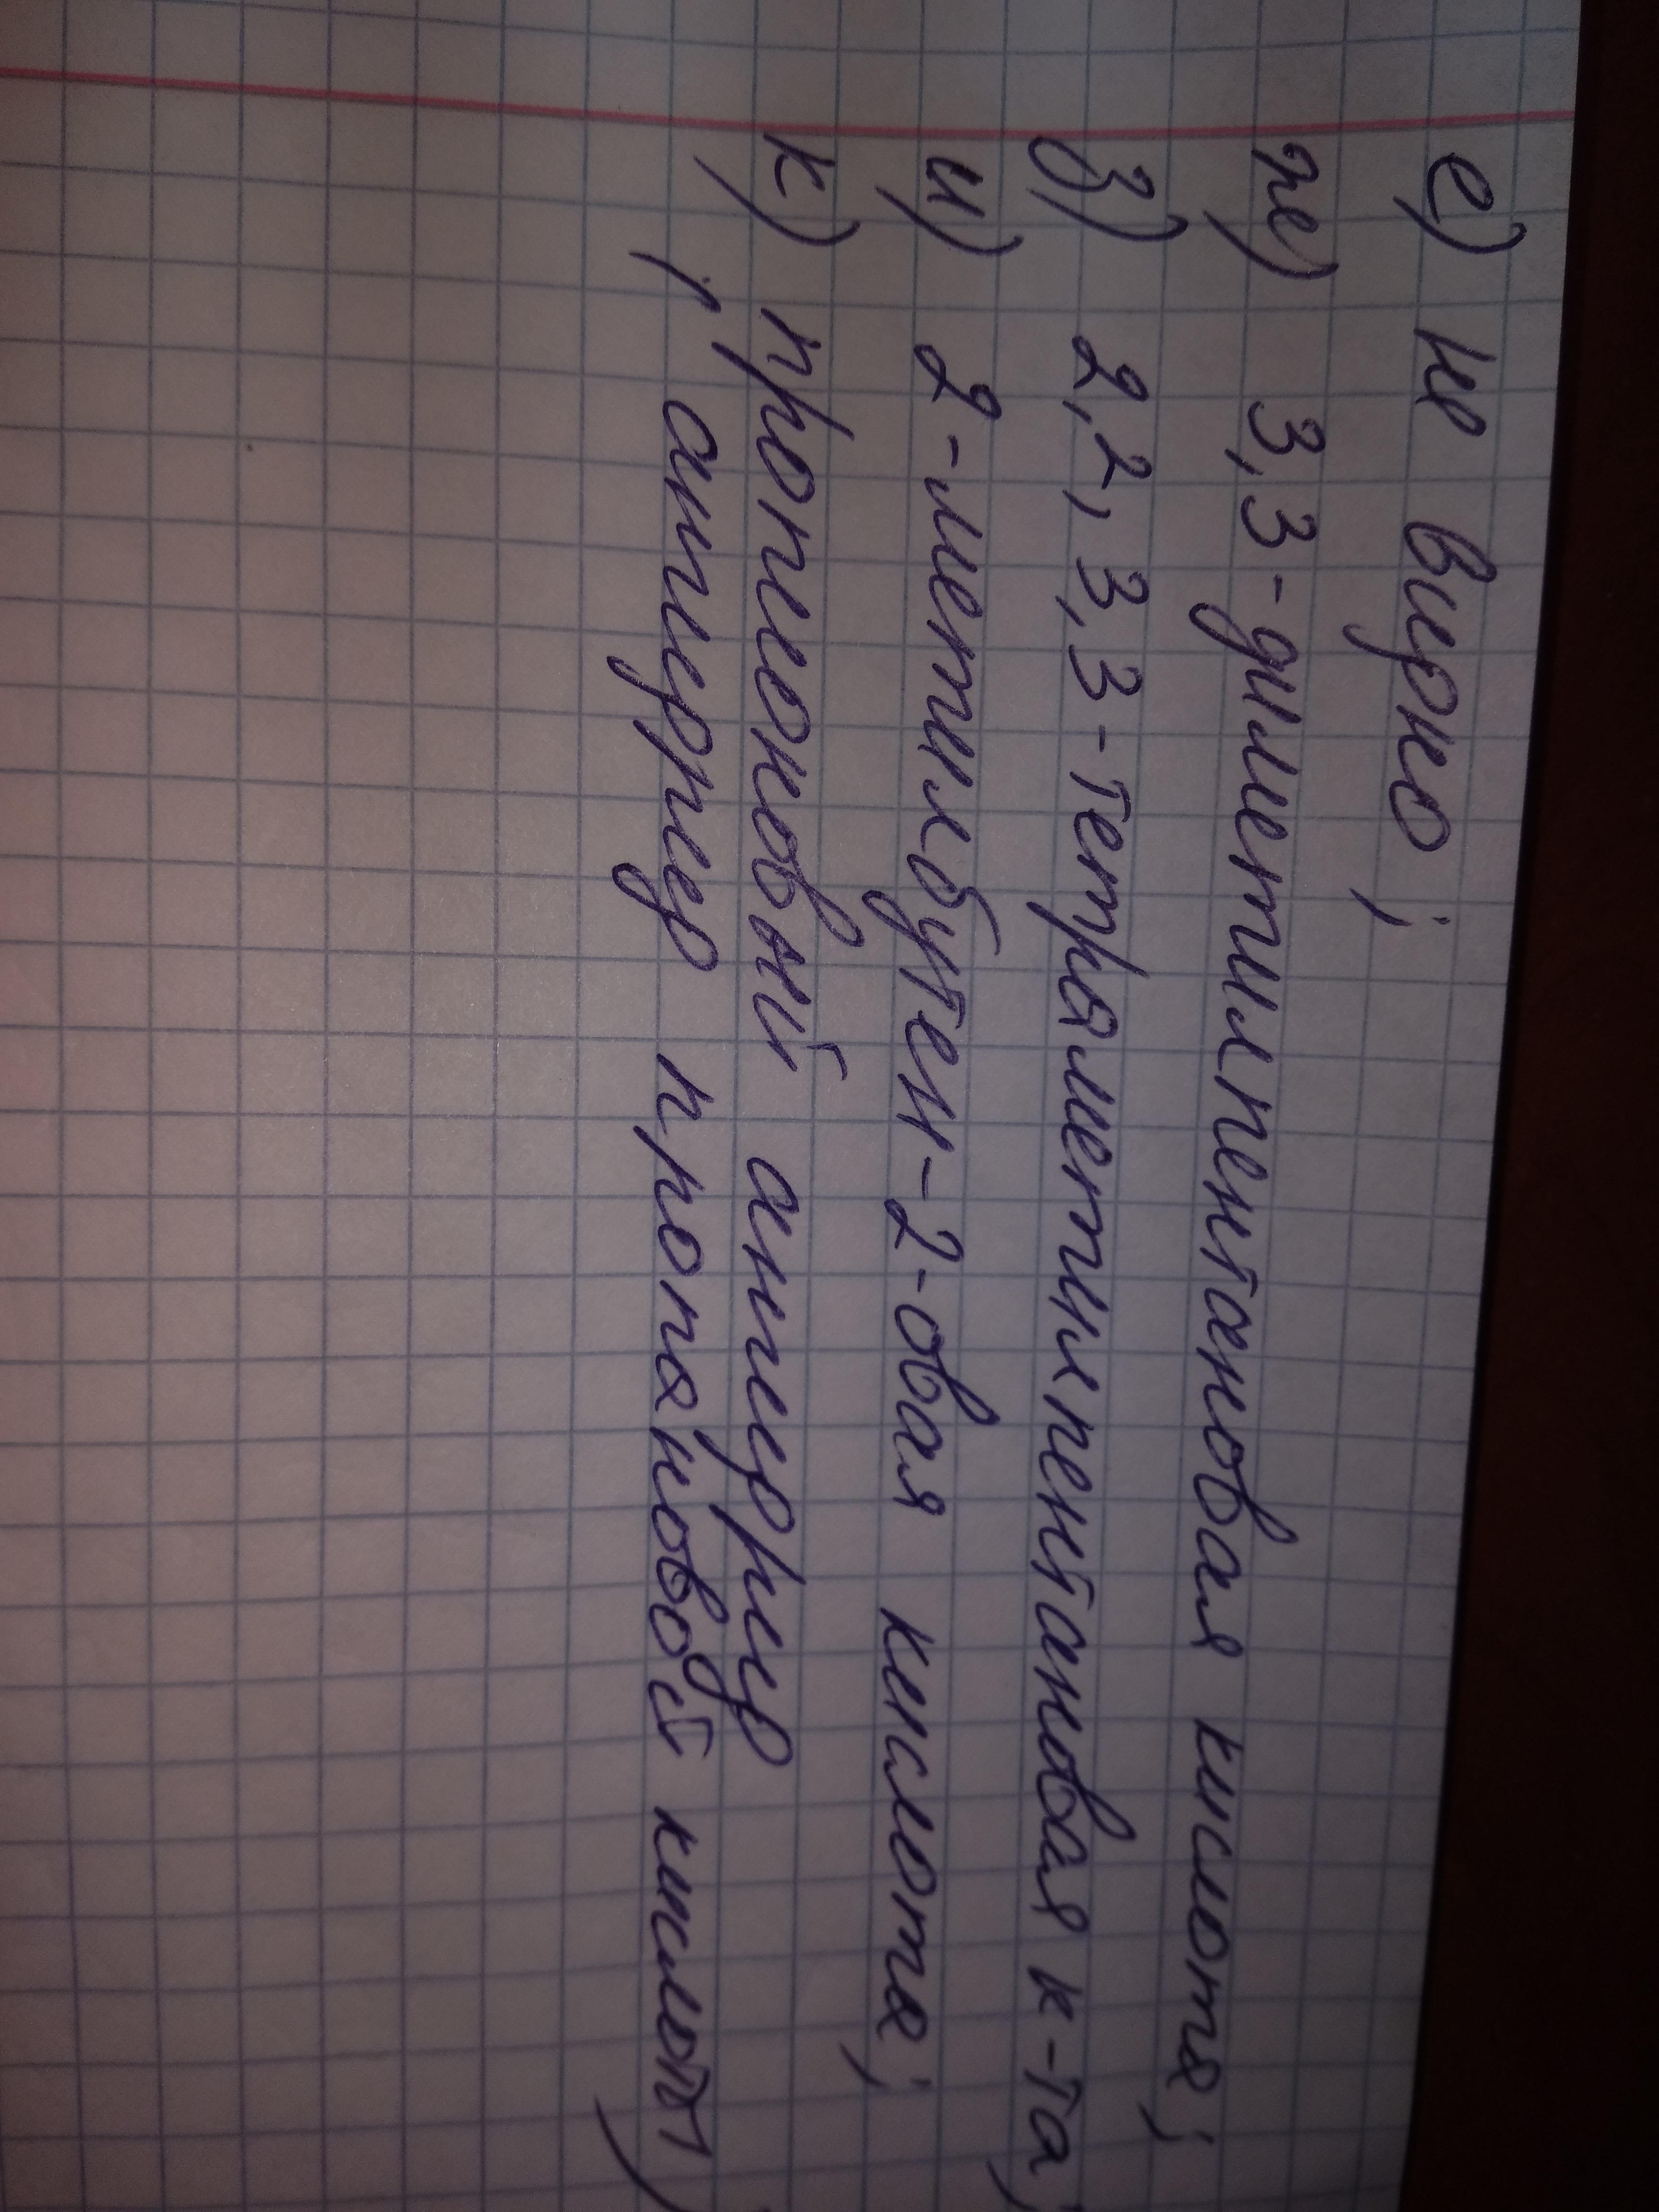 е) не видно;
ж) 3,3-диметилпентановая кислота;
з) 2,2,3,3-тетраметилпентановая к-та;
и) 2-метилбутен-2-овая кислота;
к) пропионовый ангидрид
(ангидрид пропановой кислоты)